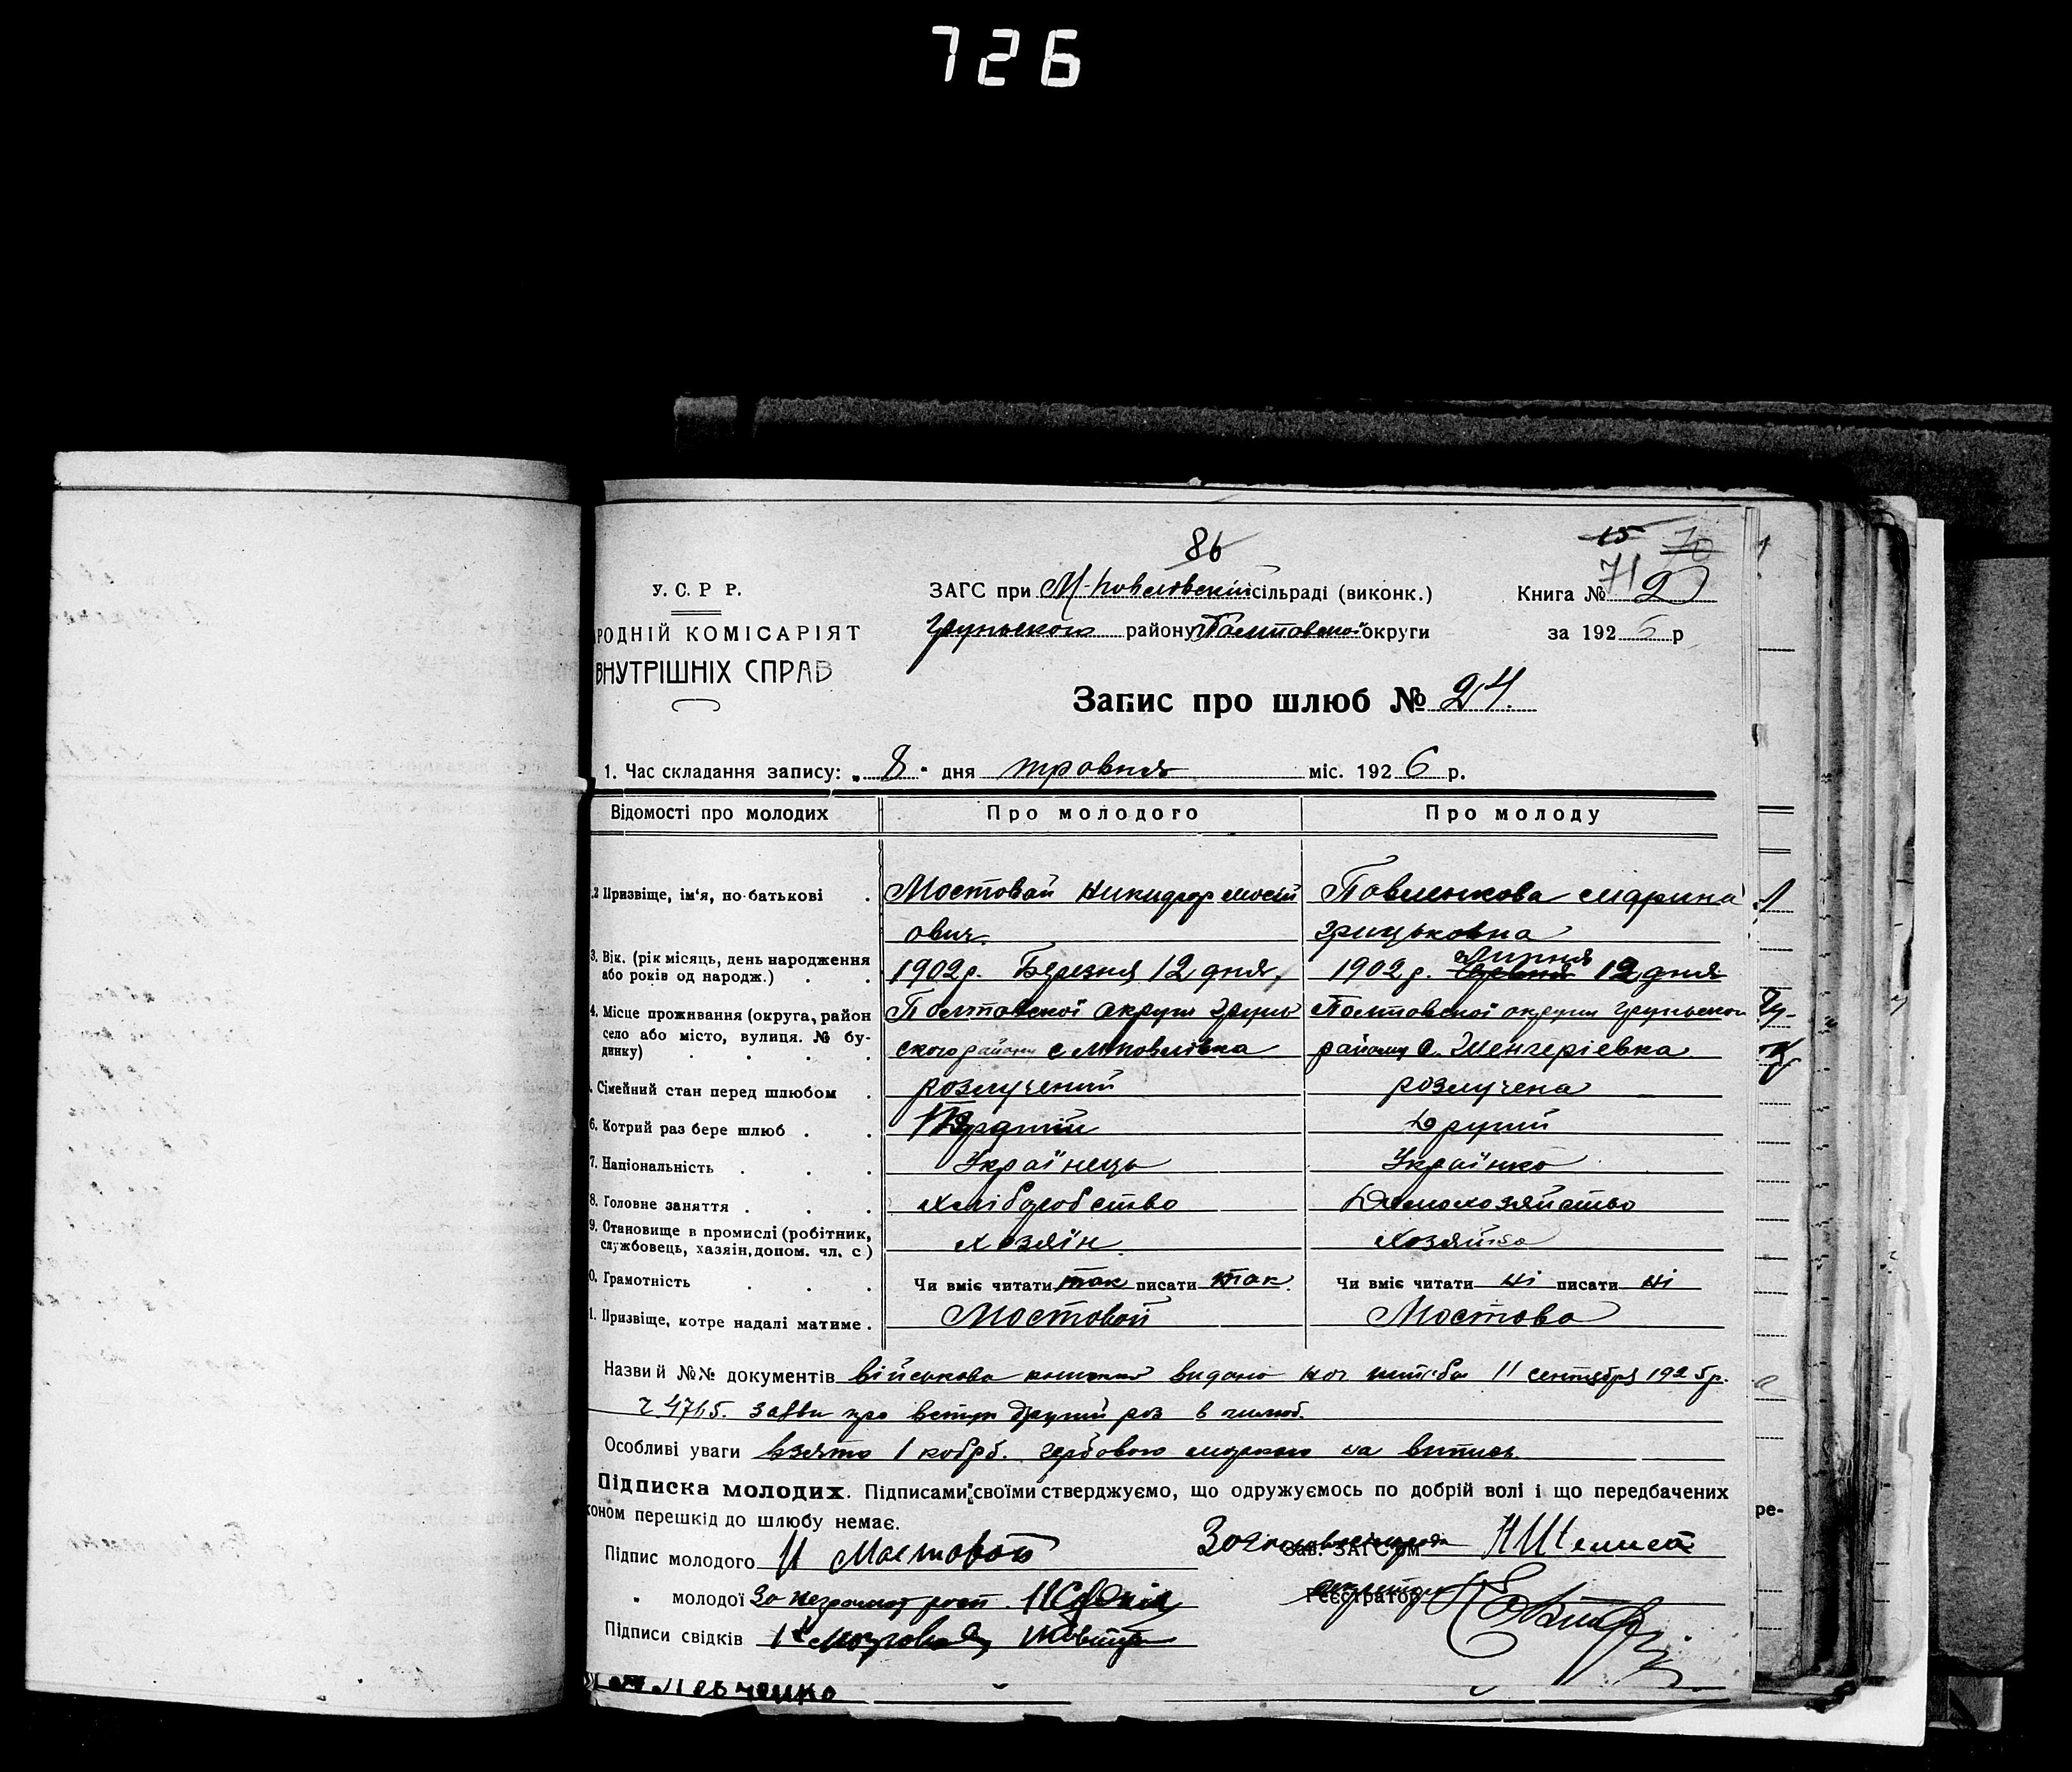 726
86
15 70
71
У. С. Р. Р.
РОДНІЙ КОМІСАРІЯТ
ВНУТРІШНІХ СПРАВ
ЗАГС при М-Повелівській сільраді (виконк.)
Грунського району Полтавської округи
Книга № 2
за 192 6 р
Запис про шлюб № 24.
1. Час складання запису: „ 8 " дня травня міс. 192 6 р.
Відомості про молодих
Про молодого
Про молоду
2 Призвіще, ім'я, по-батькові
Мостовой Никифор Мосій
ович.
Павленкова Марина
Грицьковна
3. Вік. (рік місяць, день народження
або років од народж.)
1902 р. Березня 12 дня,
1902 р. Липня 12 дня
4. Місце проживання (округа, район
село або місто, вулиця. № бу-
динку)
Полтавської округи Грунь
ского району с Мповелівка
Полтавської округи Грунського
району с. Шенгеріевка
. Сімейний стан перед шлюбом
розлучений
розлучена
6. Котрий раз бере шлюб
Другий
7. Національність
Українець
Українка
8. Головне заняття
хліборобство
Домохозяйство
9. Становище в промислі (робітник,
службовець, хазяін, допом. чл. с.)
хозяїн
Хозяйка
0. Грамотність
Чи вміє читати так писати так
Чи вміє читати ні писати ні
1. Призвіще, котре надалі матиме
Мостовой
Мостова
Назви й №№ документів військова видано 11 сентября 1925 р.
ч. 4765. заяви про вступ другий раз в шлюб.
Особливі уваги взято 1 карб. гербового на випись.
Підписка молодих. Підписами своїми стверджуємо, що одружуємось по добрій волі і що передбачених
коном перешкід до шлюбу немає.
Підпис молодого Н Мостовой
Зав. ЗАГС'ом
„ молодої За неграмот росп.
Реєстратор
Підписи свідків
Левченко
ре-